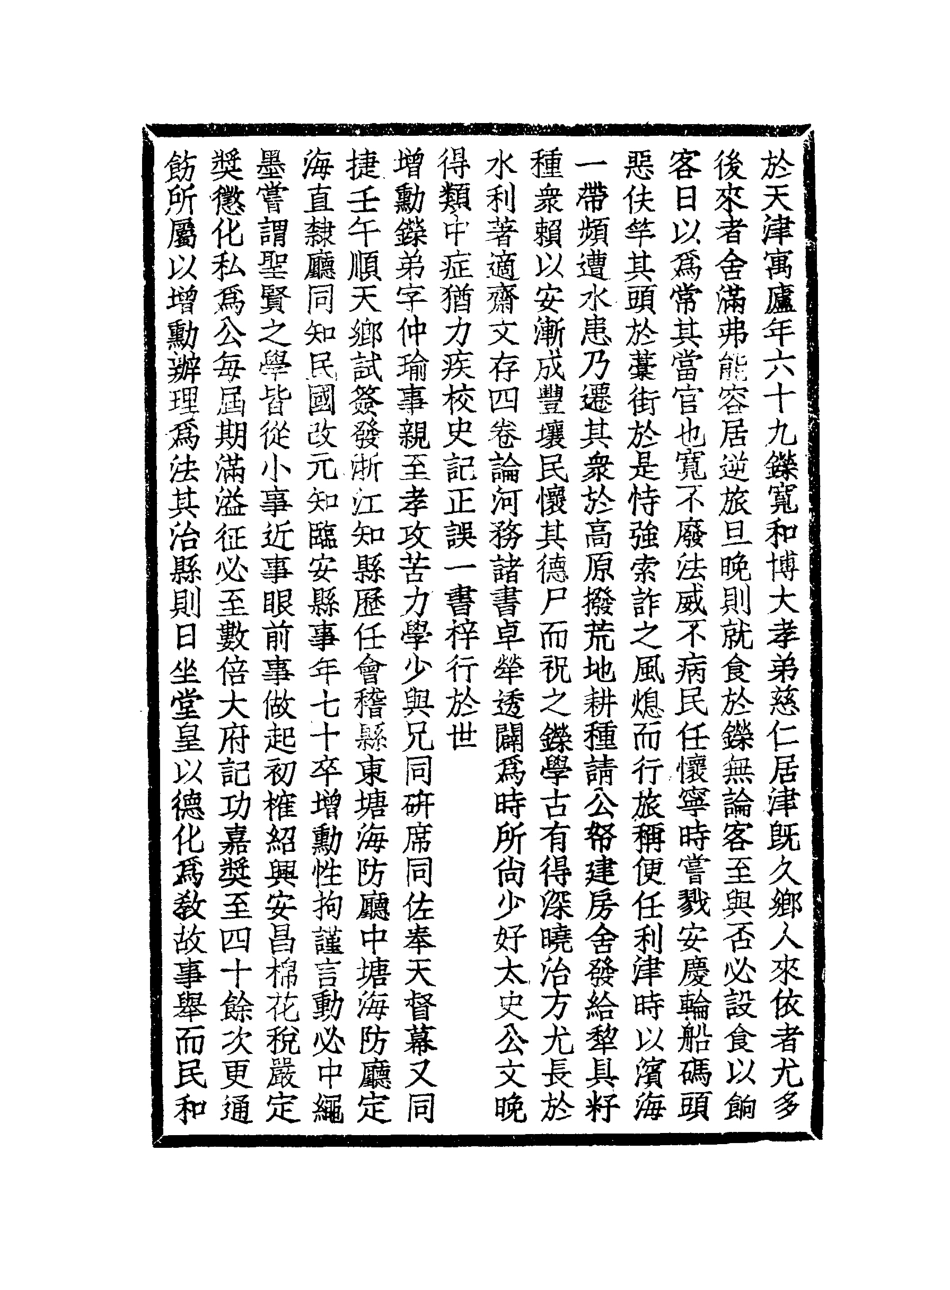 於天津寓廬年六十九鑅寬和博大孝弟慈仁居津旣久鄉人來依者尤多
後來者舍滿弗能容居逆旅旦晚則就食於鑅無論客至與否必設食以餉
客日以爲常其當官也寬不廢法威不病民任懷寧時嘗戮安慶輪船碼頭
惡伕竿其頭於藁街於是恃強索詐之風熄而行旅稱便任利津時以濱海
一帶頻遭水患乃遷其衆於高原撥荒地耕種請公帑建房舍發給犂具籽
種衆賴以安漸成豐壤民懷其德尸而祝之鑅學古有得深曉治方尤長於
水利著適齋文存四卷論河務諸書卓犖透闢爲時所尙少好太史公文晚
得類中症猶力疾校史記正誤一書梓行於世
增勳鑅弟字仲瑜事親至孝攻苦力學少與兄同硏席同佐奉天督幕又同
捷壬午順天鄉試簽發浙江知縣歷任會稽縣東塘海防廳中塘海防廳定
海直隸廳同知民國改元知臨安縣事年七十卒增勳性拘謹言動必中繩
墨嘗謂聖賢之學皆從小事近事眼前事做起初榷紹興安昌棉花稅嚴定
奬懲化私爲公每屆期滿溢征必至數倍大府記功嘉奬至四十餘次更通
飭所屬以增勳辦理爲法其治縣則日坐堂皇以德化爲敎故事舉而民和